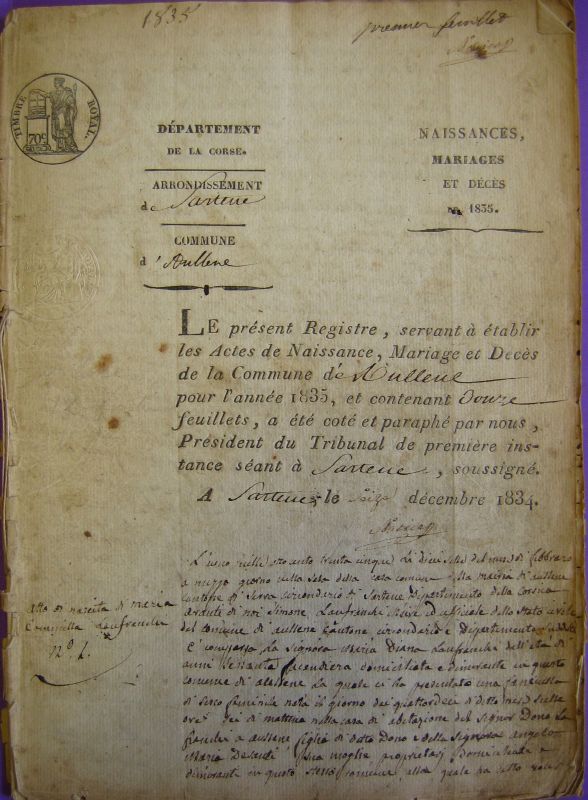 1835
premier feuillet
TIMBRE ROYAL.
70c
DÉPARTEMENT
DE LA CORSE.
ARRONDISSEMENT
de Sartene
COMMUNE
d'Aullene
NAISSANCES,
MARIAGES
ET DÉCÈS
1835.
LE présent Registre, servant à établir
les Actes de Naissance, Mariage et Decès
de la Commune d'Aullene
pour l'année 1835, et contenant Douze
feuillets, a été coté et paraphé par nous,
Président du Tribunal de première ins-
tance séant à Sartene, soussigné.
A Sartene, le Seize décembre 1834.
L'anno mille otto cento trenta cinque li dieci sette del mese di febbraro
a mezzo giorno nella casa comune della mairia di aullene
cantone di Serra circondario di Sartene Dipartimento della Corsica
avanti di noi Simone Lanfranchi uffiziale dello stato civile
del comune di aullene cantone, circondario e Dipartimento
È comparsa La Signora Maria Diana Lanfranchi dell'età di
anni sessanta facendiera domiciliata e dimorante in questo
comune di aullene La quale ci ha presentato una fanciulla
di sesso feminile nata il giorno dei quattordeci di ditto mese sulle
ore sei di mattina nella casa di abitazione del Signor Dono Lan
franchi a aullene figlia di detto Dono e della Signora Angela
Maria sua moglie proprietarj Domiciliati e
dimoranti in questo stesso comune, alla quale ha detto
atto di nascita di maria
Lanfranchi
No 1.